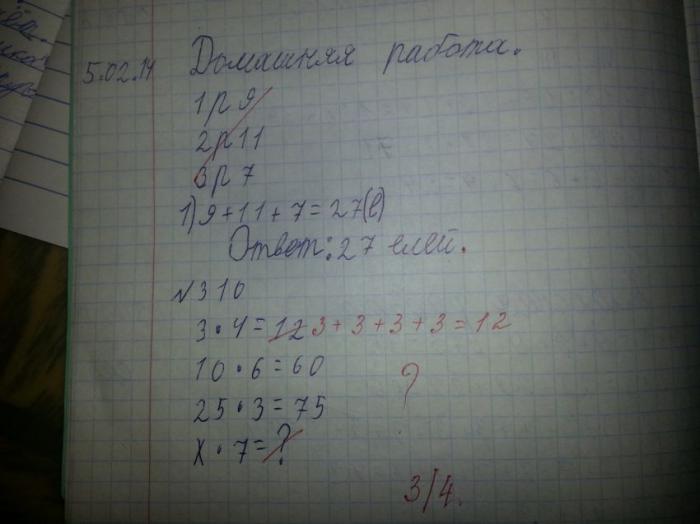 5.02.14 Домашняя работа.
1р 9
2р 11
3р 7
1) 9+11+7=27(е)
Ответ: 27 елей.
№310
3·4=12 3+3+3+3=12
10·6=60
?
25·3=75
х·7=?
3/4.